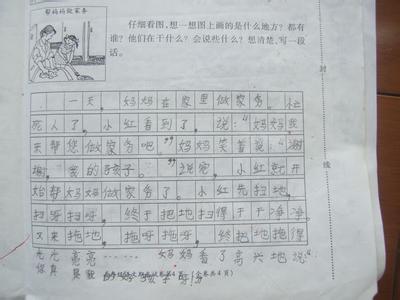 帮妈妈做家务
仔细看图,想一想图上画的是什么地方?都有
谁?他们在干什么?会说些什么?想清楚,写一段
话。
一天,妈妈在家里做家务。忙
死人了。小红看到了。说:“妈妈我
来帮您做家务吧。”妈妈笑着说:“谢
谢,我的孩子。”说完,小红就开
始帮妈妈做家务了。小红先扫地,
扫呀扫呀,终于把地扫得干干净净。
又来拖地,拖呀拖呀,终把地拖得
亮亮……妈妈看了高兴地说:“
你真
的好孩子呀!
封
线